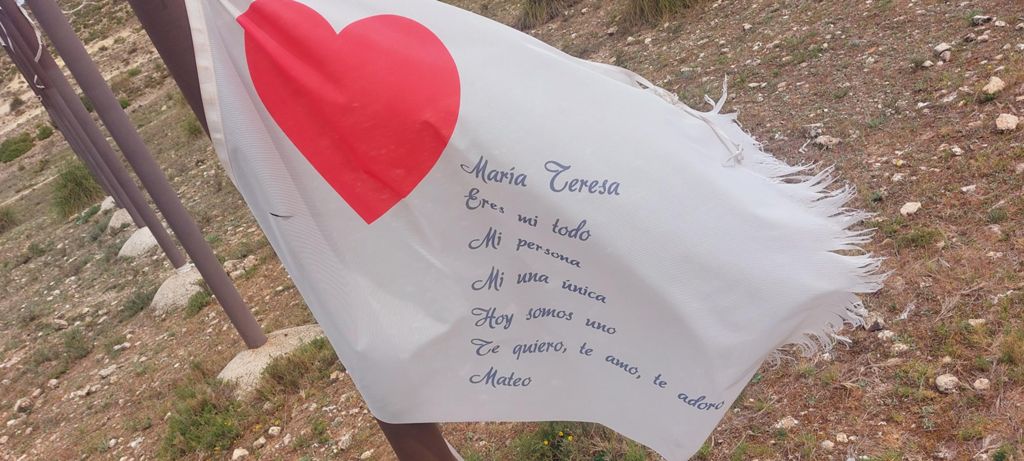 María Teresa
Eres mi todo
Mi persona
Mi una única
Hoy somos uno
Te quiero, te amo, te adoro
Mateo